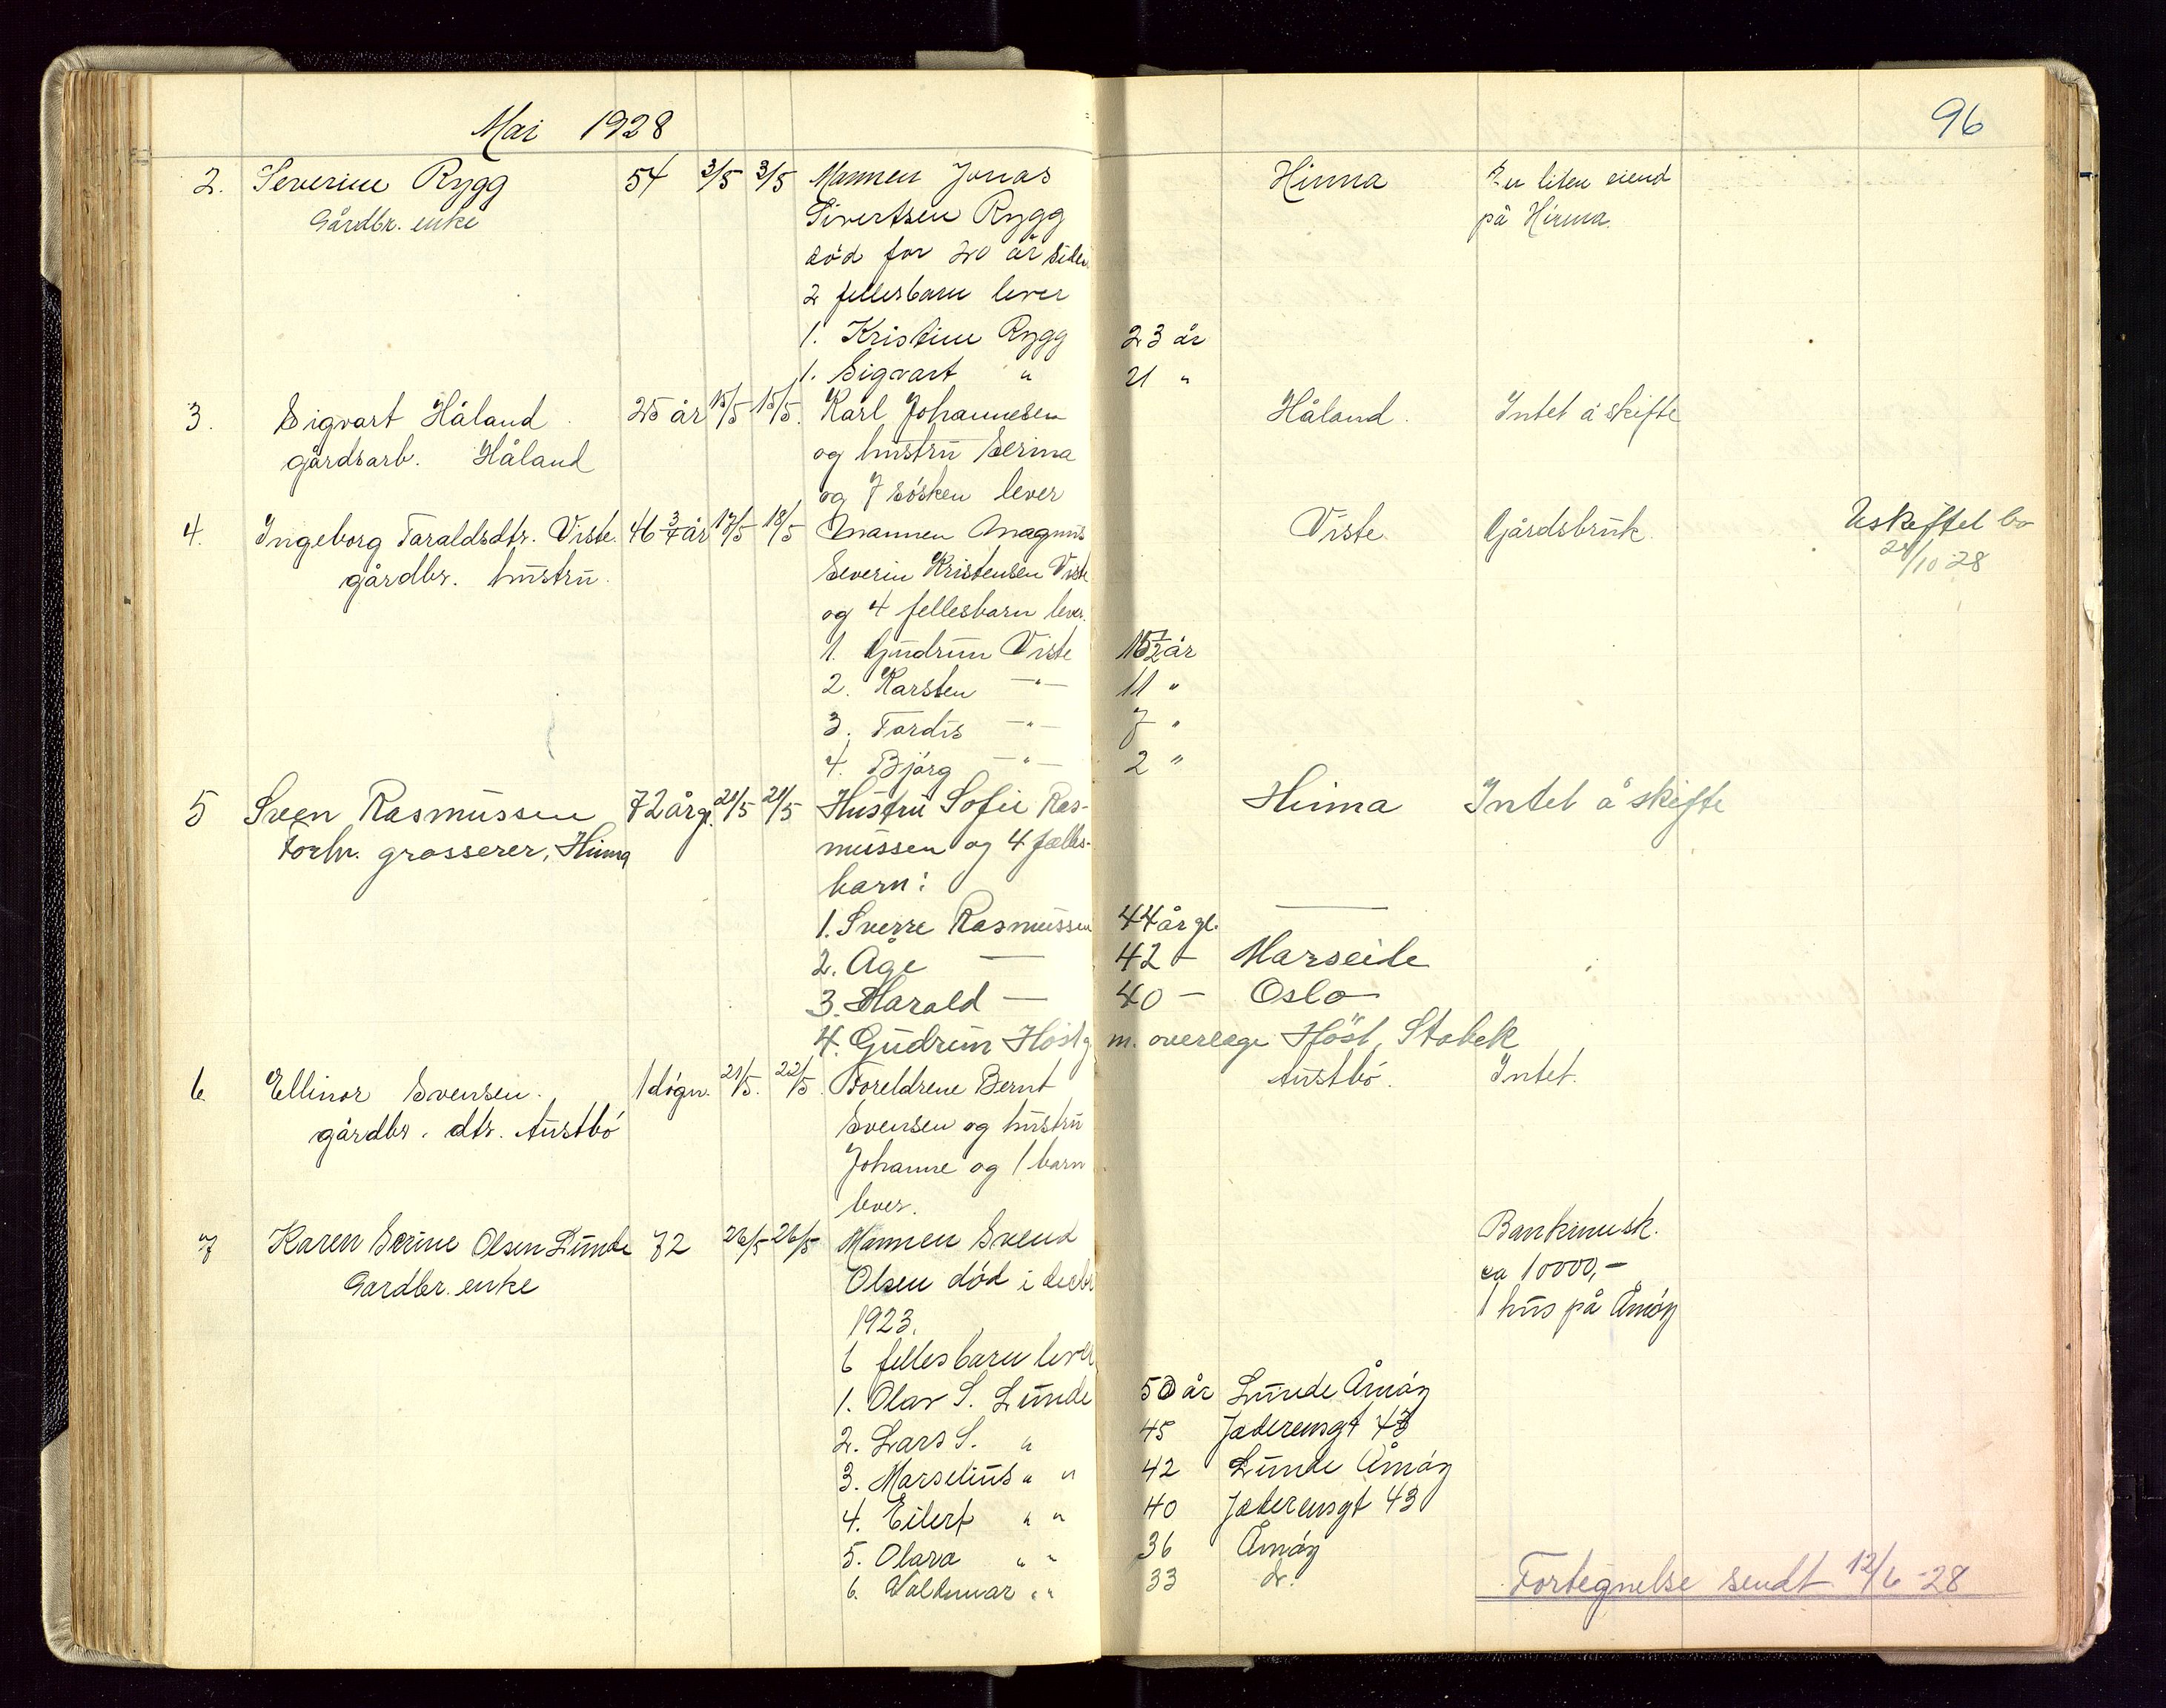 Mai 1928
96
2. Severine Rygg 54 3/5 3/5 Mannen Jonas Hinna En liten eiend
Gårdbr. enke Sivertsen Rygg på Hinna.
död for 20 år siden
2 fellesbarn lever
1. Kristine Rygg 23 år
1. Sigvart " 21 "
3. Sigvart Håland 25 år 15/5 15/5. Karl Johannesen Håland. Intet å skifte
gårdsarb. Håland og hustru Serina
og 7 sösken lever
4. Ingeborg Taraldsdtr. Viste 46 3/4 år 17/5 18/5 Mannen Magnus Viste Gårdsbruk. Uskiftet bo
gårdbr. hustru. Severin Kristensen Viste 24/10-28
og 4 fellesbarn lever.
1. Gudrun Viste 15 1/2 år
2. Karsten —"— 11 "
3. Tordis —"— 7 "
4. Bjórg —"— 2 "
5 Sven Rasmussen 72 årgl. 21/5 21/5 Hustru Sofie Ras- Hinna Intet å skifte
Forhv. grosserer, Hinna mussen og 4 felles-
barn:
1. Sverre Rasmussen 44 år gl. —
2. Åge — 42 - Marseile
3. Harald — 40 - Oslo
4. Gudrun Höst g m. overlege Höst, Stabek
6 Ellinor Svensen. 1 dógn. 21/5. 22/5. Foreldrene Bernt Austbó. Intet.
gårdbr. dtr. Austbó Svensen og hustru
Johanne og 1 barn
lever.
7 Karen Serine Olsen Lunde 72 26/5 26/5 Mannen Svend Bankinnsk.
Gardbr. enke Olsen död i decbr ca 10000,-
1923. 1 hus på Åmóy
6 fellesbarn lever
1. Olav S. Lunde 50 år Lunde Åmóy
2. Lars S. " 45 Jæderensgt 43
3. Marselius " " 42 Lunde Åmóy
4. Eilert " " 40 Jæderensgt 43
5. Olava " " 36 Åmóy
6. Valdemar " " 33 do.
Fortegnelse sendt 12/6-28